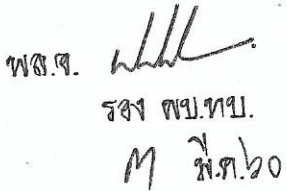 พล.อ.
รอง ผบ.ทบ.
มี.ค.๖๐